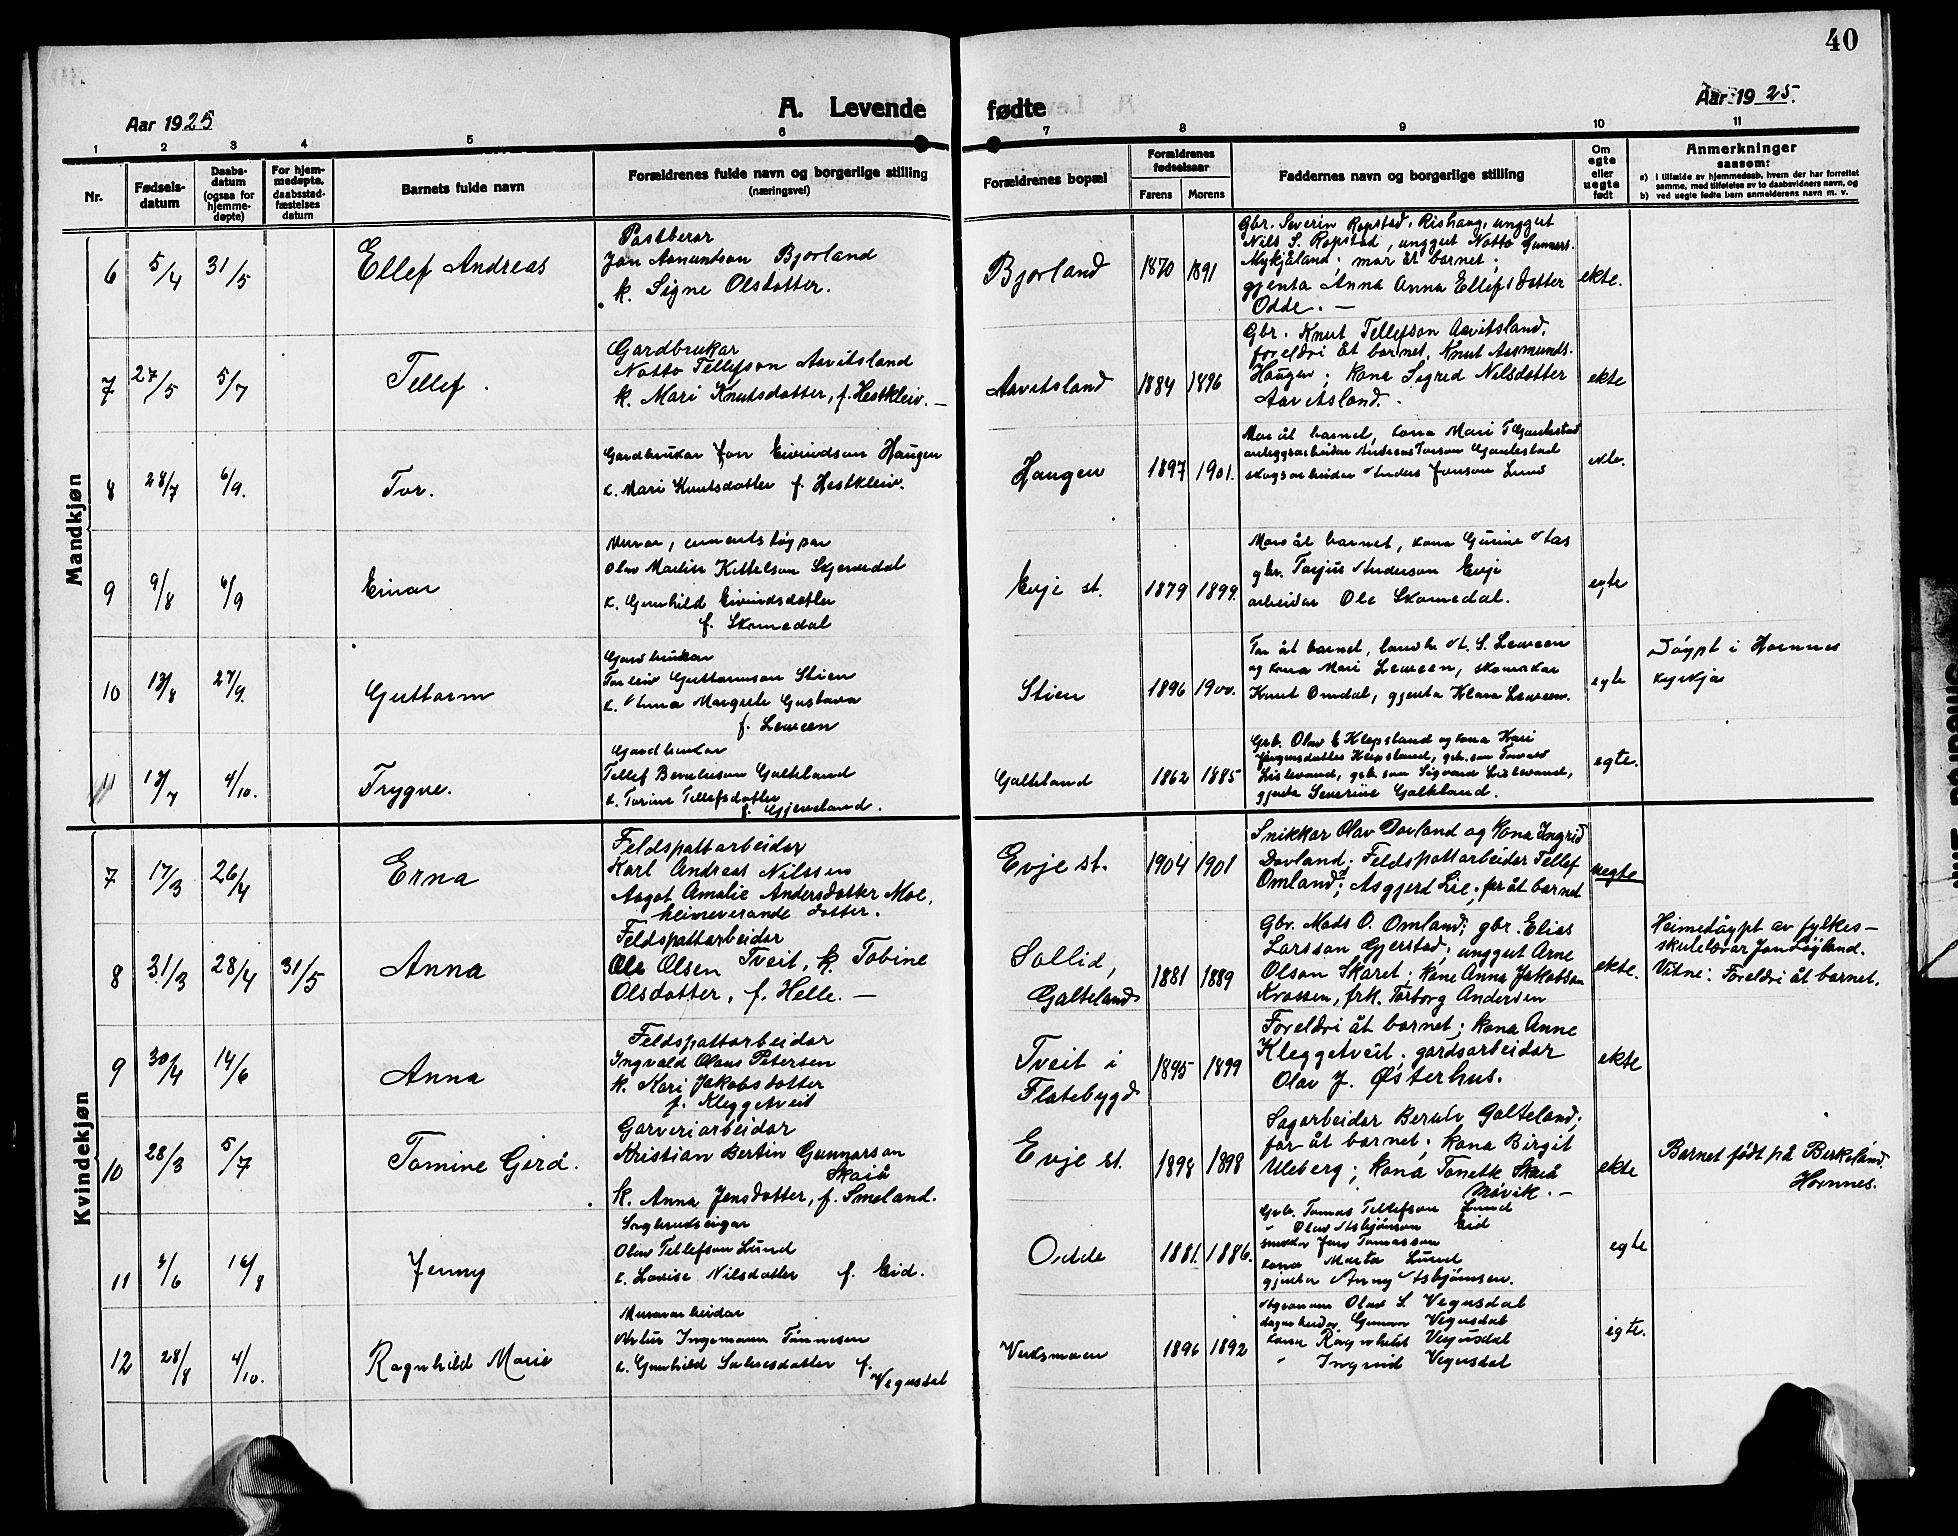 40
Aar 1925
A. Levende fødte
Aar 1925.
1 2 3 4 5 6 7 8 9 10 11
Nr.
Fødsels-
datum
Daabs-
datum
(ogsaa for
hjemme-
døpte)
For hjem-
medøpte,
daabsstad-
fæstelses
datum
Barnets fulde navn
Forældrenes fulde navn og borgerlige stilling
(næringsvei)
Forældrenes bopæl
Forældrenes
fødselsaar
Farens Morens
Faddernes navn og borgerlige stilling
Om
egte
eller
uegte
født
Anmerkninger
saasom:
a) i tilfælde av hjemmedaab, hvem der har forrettet
samme, med tilføielse av to daabsvidners navn, og
b) ved uegte fødte barn anmelderens navn m. v.
Mandkjøn
6 5/4 31/5
Ellef Andreas
Postberar
Jon Aanundson Bjorland
k. Signe Olsdotter.
Bjorland
1870 1891
Gbr. Severin Ropstad, Rishaug, unggut
Nils S. Ropstad, unggut Notto Gunnars.
Mykjåland; mor åt barnet;
gjenta Anna Anna Ellefsdotter
Odde. —
ekte.
7 27/5 5/7
Tellef.
Gardbrukar
Notto Tellefson Aavitsland
k. Mari Knutsdotter, f. Hestkleiv. —
Aavitsland
1884 1896
Gbr. Knut Tellefson Aavitsland,
foreldri åt barnet, Knut Aasmunds.
Haugen; kona Sigrid Nilsdotter
Aavitsland. -
ekte
8 28/7 6/9.
Tor.
Gardbrukar Jon Eivindson Haugen
k. Mari Knutsdotter f. Hestkleiv.
Haugen
1897 1901.
Mor åt barnet, kona Mari T
anleggsarbeidar Andreas Torson
skogsarbeidar Anders Jonson Lund
ekte.
9 9/8 6/9
Einar
Murar, cementstøypar
Olav Martin Kittelson Skjerredal
k. Gunhild Eivindsdotter
f. Skomedal
Evje st.
1879 1899.
Mor åt barnet, kona Gurine Aas
gbr. Torjus Anderson Evje
arbeidar Ole Skomedal.
egte
10 13/8 27/9.
Guttorm
Gardbrukar
Torleiv Guttormson Stien
k. Anna Margrete Gustava
f. Leween
Stien
1896 1900.
Far åt barnet, A. S. Leween
og kona Mari Leween, skomakar
Knut Omdal, gjenta Klara Leween.
egte
Døypt i Hornnes
kyrkja
11 13/7 4/10.
Trygve.
Gardbrukar
Tellef Berulvson Galteland
k. Torine Tellefsdotter
f. Gjeveland.
Galteland
1862 1885
Grb. Olav E Klepsland og kona Kari
Jørgensdotter Klepsland, grb. son
Lislevand, grb. son Sigvard Lislevand,
gjenta Severine Galteland.
egte.
Kvindekjøn
7 17/3 26/4
Erna
Feldspattarbeidar
Karl Andreas Nilssen
Aagot Amalie Andersdotter Moe,
heimeverande dotter.
Evje st.
1904 1901
Snikkar Olav Dovland og kona Ingrid
Dovland; Feldspattarbeidar Tellef
Omland; Asgjerd Lie; far åt barnet
uegte
8 31/3 28/4 31/5
Anna
Feldspattarbeidar
Ole Olsen Tveit, k. Tobine
Olsdotter, f. Helle. —
Sollid,
Galteland
1881 1889
Gbr. Mads O. Omland; gbr. Elias
Larsson Gjerstad; unggut Arne
Olson Skaret; kone Anna Jakobson
Krossen, frk. Torborg Andersen
ekte.
Heimedøypt av fylkes-
skulelærar Jon Løyland.
Vitne: Foreldri åt barnet.
9 30/4 14/6
Anna
Feldspattarbeidar
Ingvald Olaus Petersen
k. Kari Jakobsdotter
f. Kleggetveit
Tveit i
Flatebygd
1895 1899
Foreldri åt barnet; kona Anne
Kleggetveit. gardsarbeidar
Olav J. Østerhus.
ekte
10 28/3 5/7
Tomine Gerd.
Garveriarbeidar
Kristian Bertin Gunnarson
Skaiå
k. Anna Jensdotter, f. Smeland.
Evje st.
1898 1898
Sagarbeidar Berulv Galteland;
far åt barnet; kona Birgit
Uleberg; kona Tonette Skaiå
Møvik. —
ekte
Barnet født på Birkeland
Hornnes.
11 3/6 16/8
Jenny
Sagbrukseigar
Olav Tellefson Lund
k. Lovise Nilsdotter f. Eid.
Odde
1881. 1886.
Grb. Tomas Tellefson Lund
" Olav Asbjønson Eid
snikkar Jens Tomasson
kona Marta Lund
gjenta Anny Asbjønsen.
egte
12 28/8 4/10.
Ragnhild Marie
Murararbeidar
Artur Ingemann Tønnesen
k. Gunhild Salvesdotter f.
Vegusdal
Verksmoen
1896 1892
Agronom Olav S. Vegusdal
dagarbeidar Gunnar Vegusdal
kona Ragnhild Vegusdal
" Ingrid Vegusdal
egte.